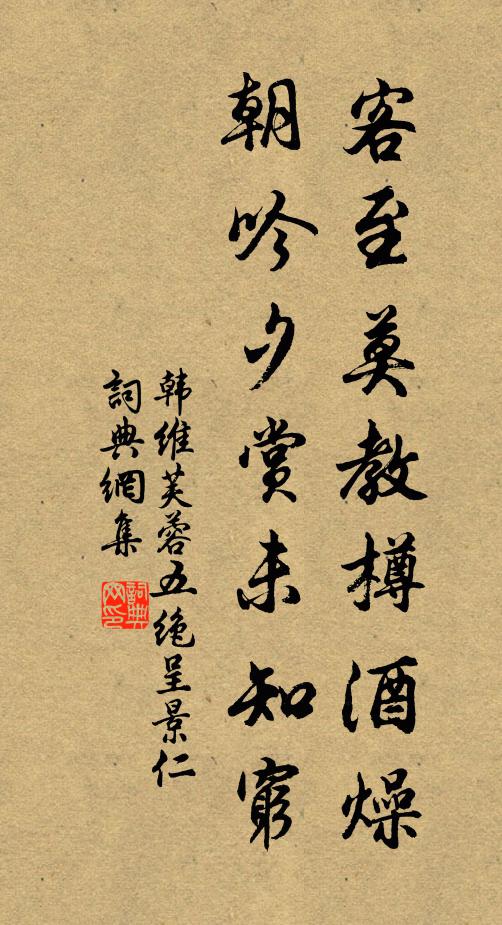 客至莫教樽酒燥
朝吟夕赏未知窮
韩维芙蓉五绝呈景仁
詞典網集
詞典网印